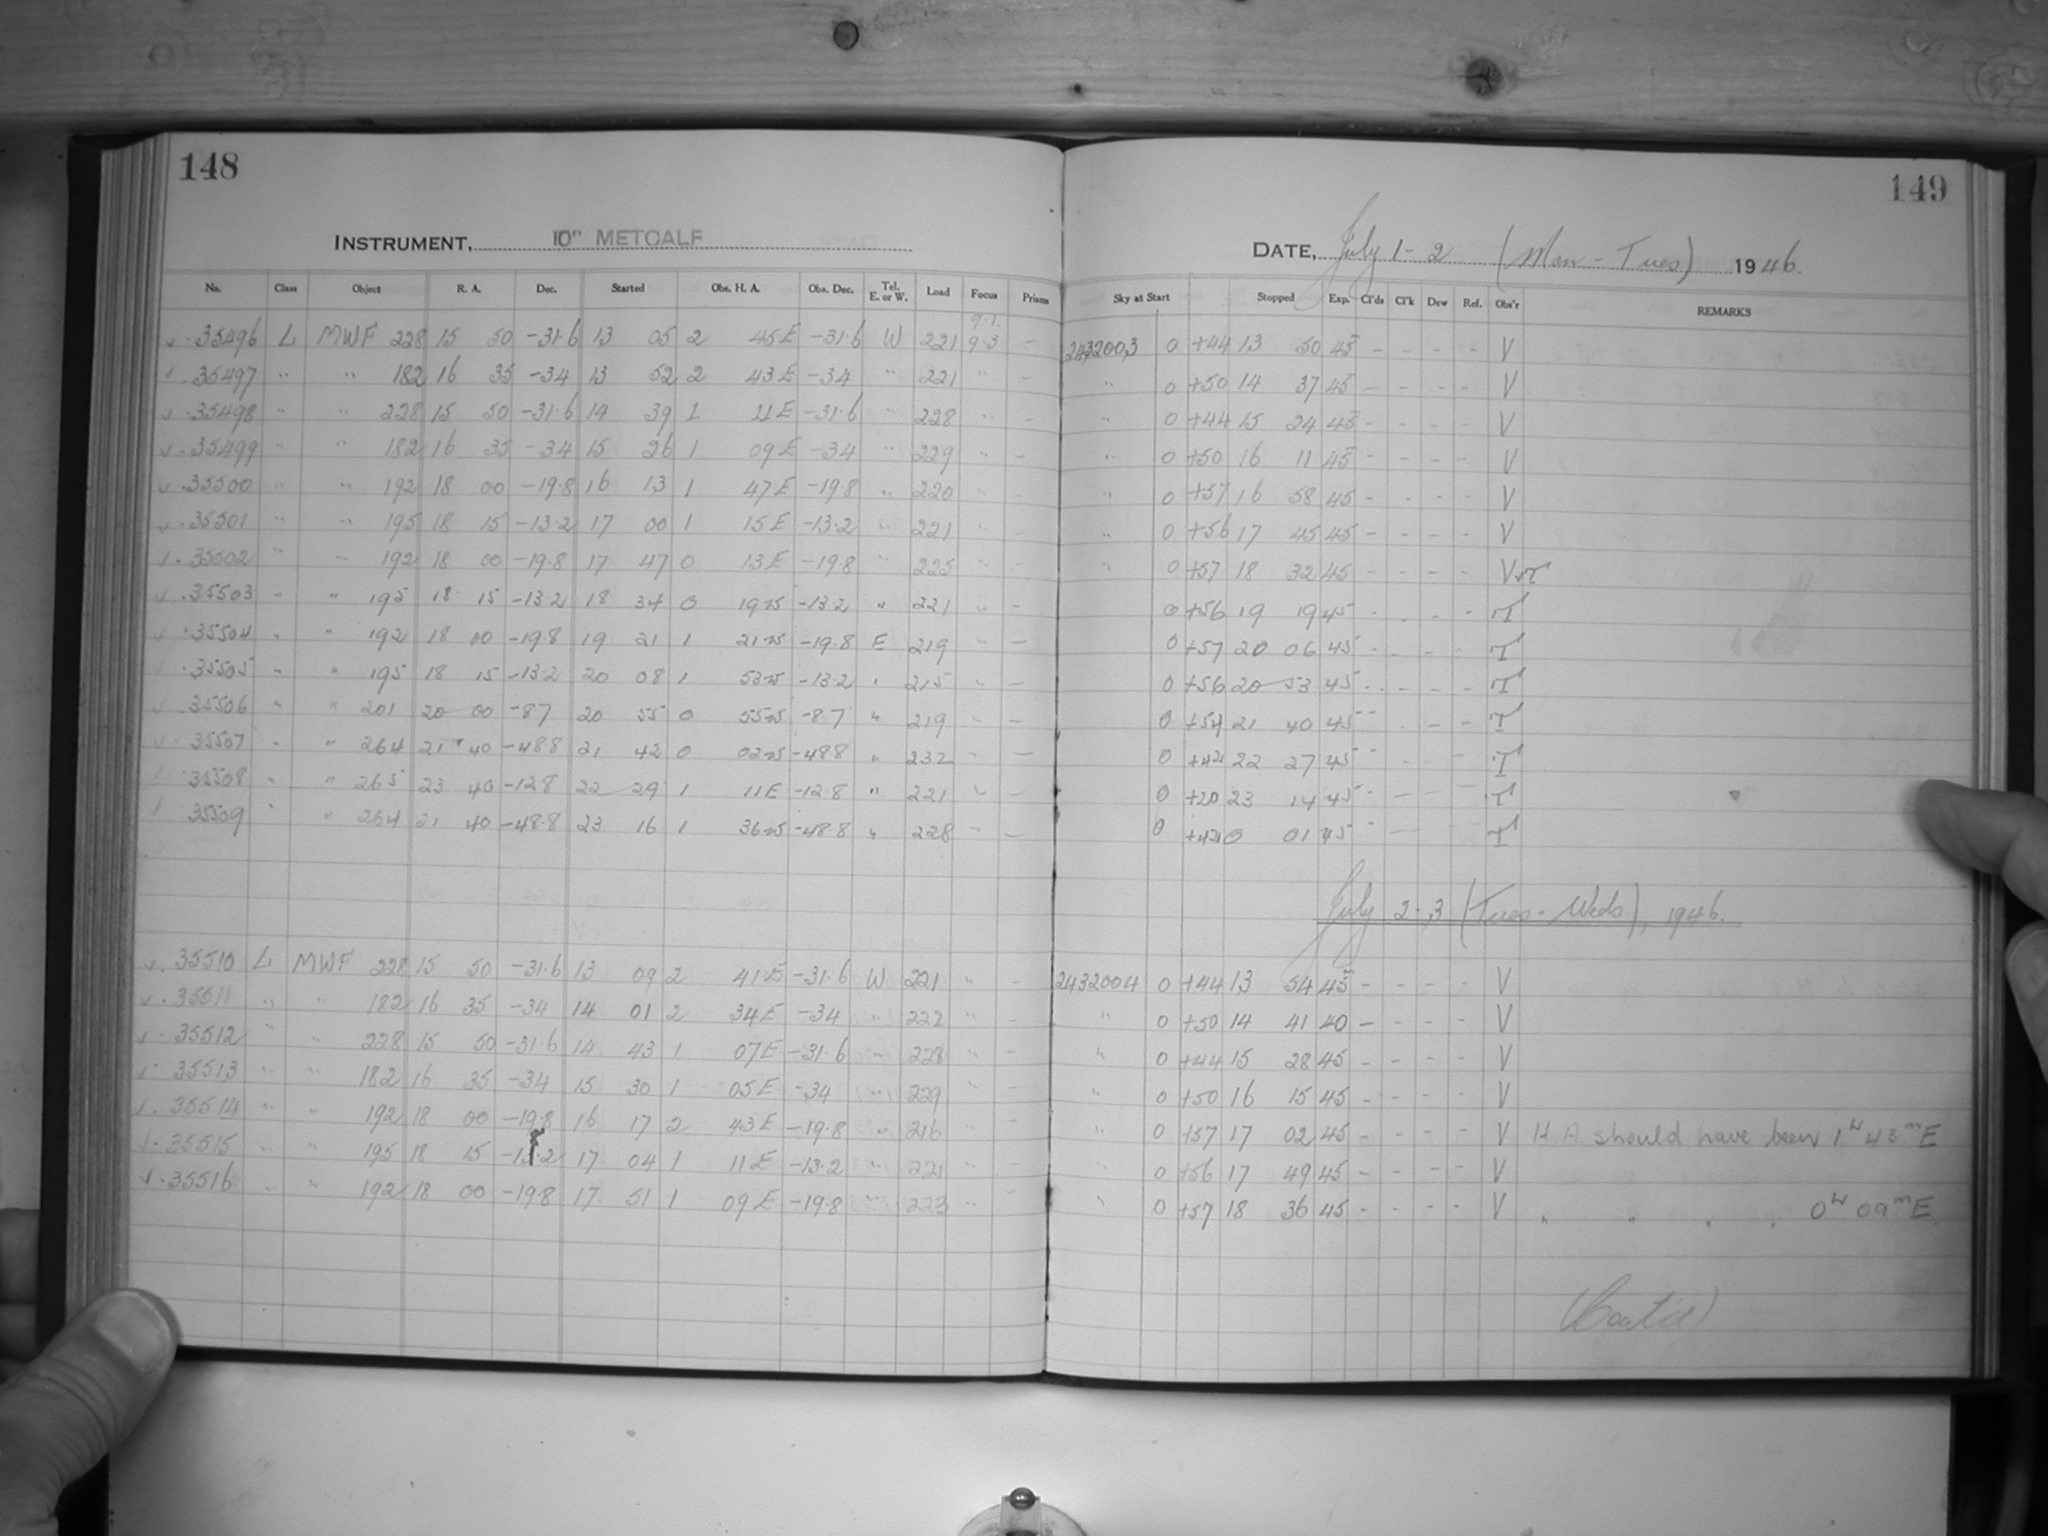 148
149
INSTRUMENT, 10" METCALF
DATE, July 1-2 (Mon - Tues) 1946.
No. Class Object R. A. Dec. Started Obs. H. A. Obs. Dec. Tel. E. or W. Load Focus Prisms Sky at Start Stopped Exp. Cl'ds Cl'k Dew Ref. Obs'r REMARKS
9.1
35496 L MWF 228 15 50 -31.6 13 05 2 45E -31.6 W 221 9.3 - 2432003 0 +44 13 50 45 - - - - V
35497 " " 182 16 35 -34 13 52 2 43E -34 " 221 " - " 0 +50 14 37 45 - - - - V
35498 " " 228 15 50 -31.6 14 39 1 11E -31.6 " 228 " - " 0 +44 15 24 45 - - - - V
35499 " " 182 16 35 -34 15 26 1 09E -34 " 229 " - " 0 +50 16 11 45 - - - - V
35500 " " 192 18 00 -19.8 16 13 1 47E -19.8 " 220 " - " 0 +57 16 58 45 - - - - V
35501 " " 195 18 15 -13.2 17 00 1 15E -13.2 " 221 " - " 0 +56 17 45 45 - - - - V
35502 " " 192 18 00 -19.8 17 47 0 13E -19.8 " 225 " - " 0 +57 18 32 45 - - - - V+T
35503 " " 195 18 15 -13.2 18 34 0 19W -13.2 " 221 " - 0 +56 19 19 45 - - - - T
35504 " " 192 18 00 -19.8 19 21 1 21W -19.8 E 219 " - 0 +57 20 06 45 - - - - T
35505 " " 195 18 15 -13.2 20 08 1 53W -13.2 " 215 " - 0 +56 20 53 45 - - - - T
35506 " " 201 20 00 -8.7 20 55 0 55W -8.7 " 219 " - 0 +54 21 40 45 - - - - T
35507 " " 264 21 40 -48.8 21 42 0 02W -48.8 " 232 " - 0 +42 22 27 45 - - - - T
35508 " " 265 23 40 -12.8 22 29 1 11E -12.8 " 221 " - 0 +20 23 14 45 - - - T
35509 " " 264 21 40 -48.8 23 16 1 36W -48.8 " 228 " - 0 +42 0 01 45 - - - T
July 2-3 (Tues - Weds), 1946.
35510 L MWF 228 15 50 -31.6 13 09 2 41E -31.6 W 221 " - 2432004 0 +44 13 54 45 - - - - V
35511 " " 182 16 35 -34 14 01 2 34E -34 " 222 " - " 0 +50 14 41 40 - - - - V
35512 " " 228 15 50 -31.6 14 43 1 07E -31.6 " 228 " - " 0 +44 15 28 45 - - - - V
35513 " " 182 16 35 -34 15 30 1 05E -34 " 229 " - " 0 +50 16 15 45 - - - - V
35514 " " 192 18 00 -19.8 16 17 2 43E -19.8 " 216 " - " 0 +57 17 02 45 - - - - V H.A. should have been 1ʰ 43ᵐE
35515 " " 195 18 15 -13.2 17 04 1 11E -13.2 " 221 " - " 0 +56 17 49 45 - - - - V
35516 " " 192 18 00 -19.8 17 51 1 09E -19.8 " 223 " - " 0 +57 18 36 45 - - - - V " " " " 0ʰ 09ᵐE
(Cont'd)